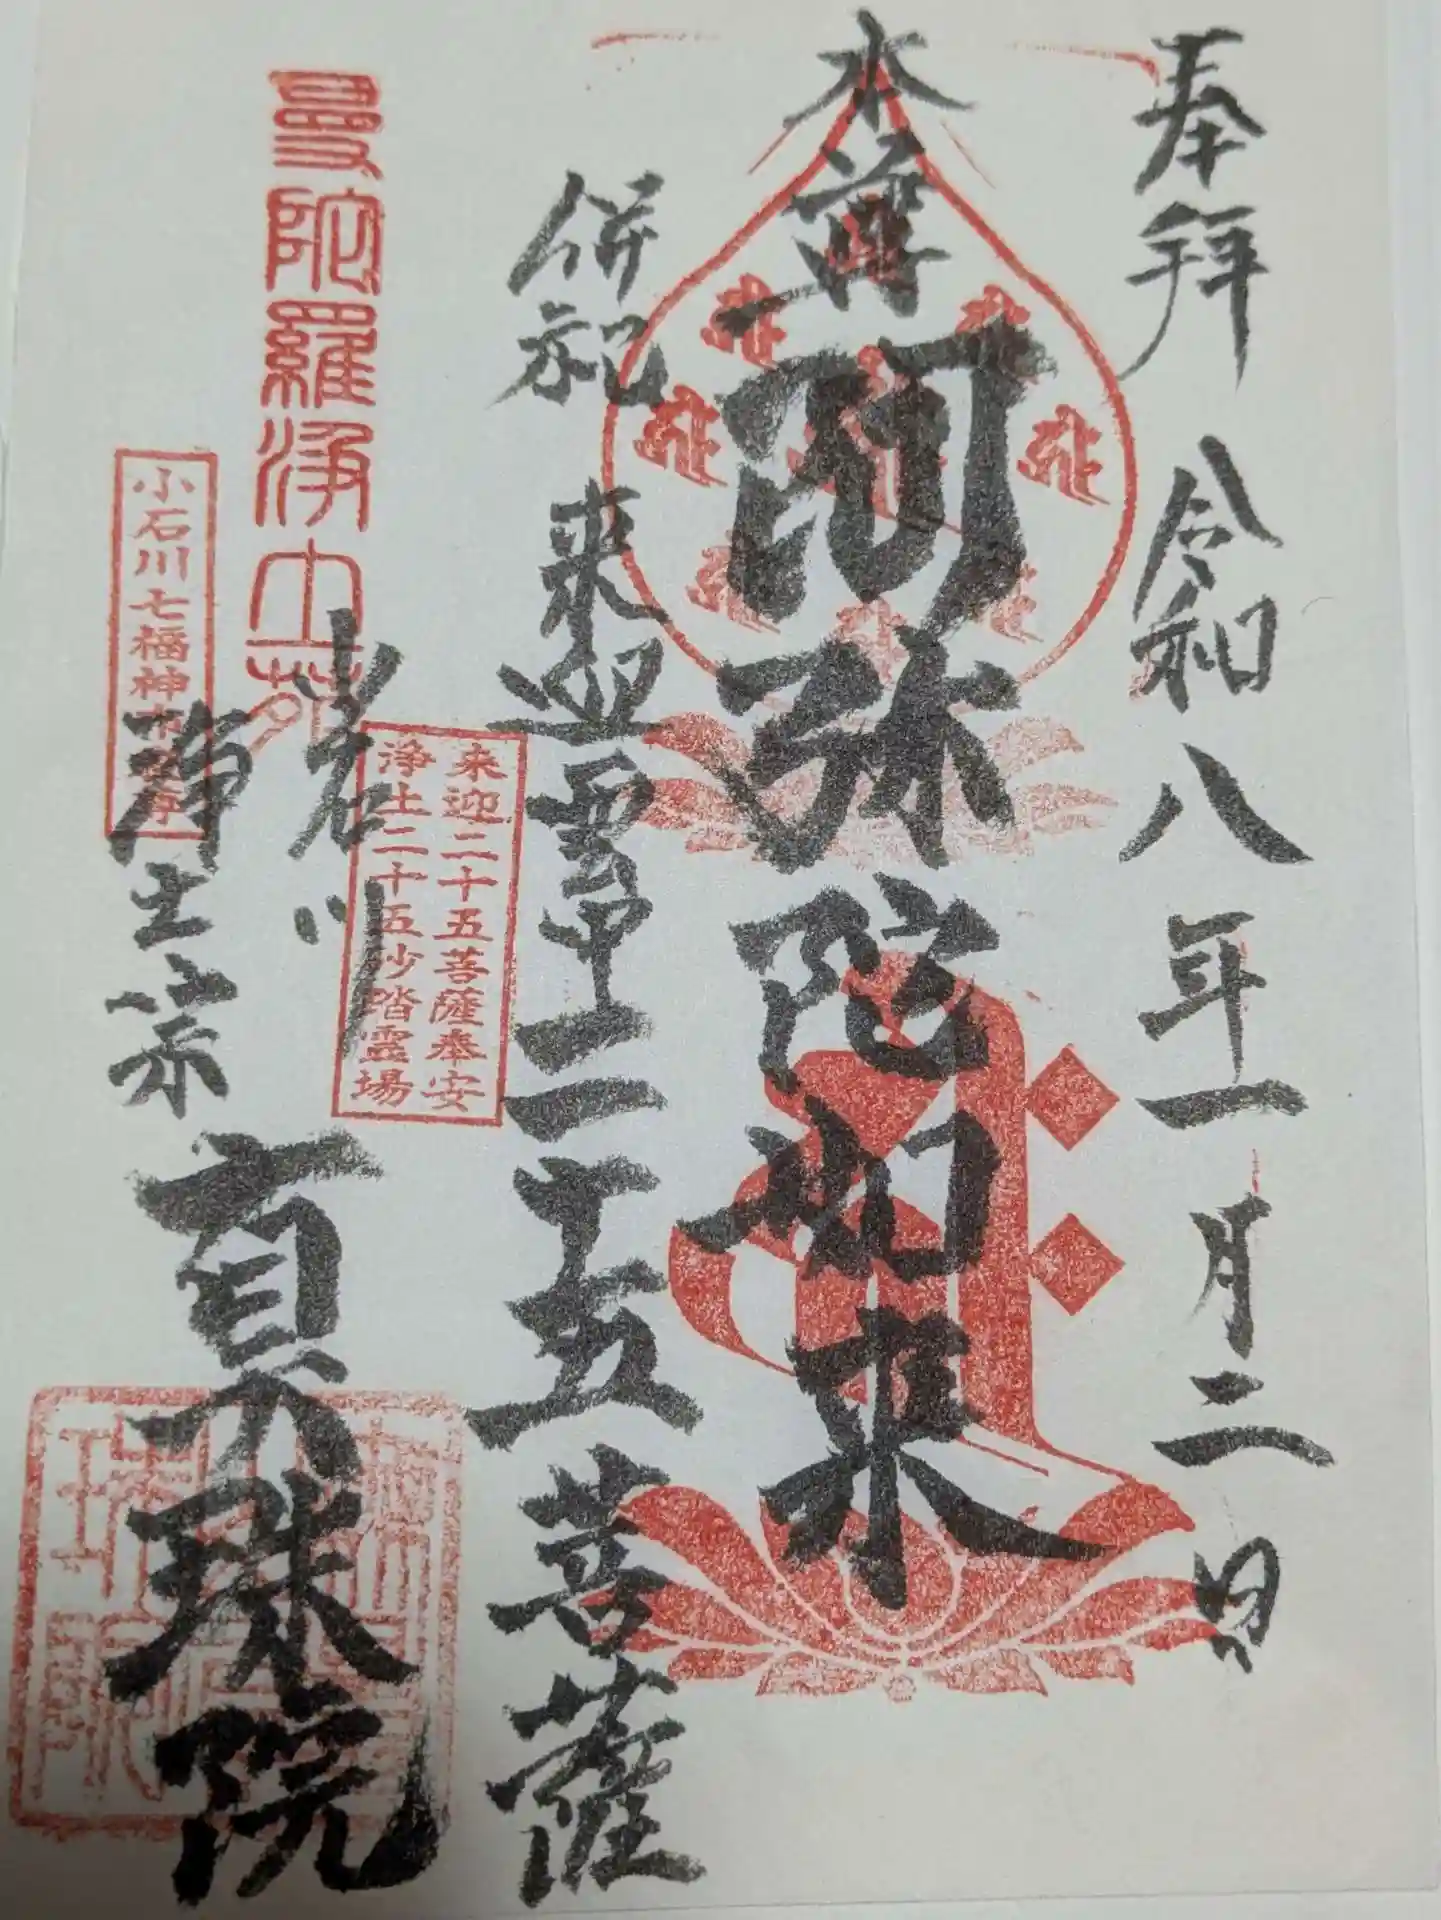 奉拝 令和八年一月二日
本尊
阿弥陀如来
併祀 来迎雲中二十五菩薩
曼陀羅浄土苑
来迎二十五菩薩奉安
浄土二十五妙踏霊場
小石川七福神
小石川
浄土宗 真珠院